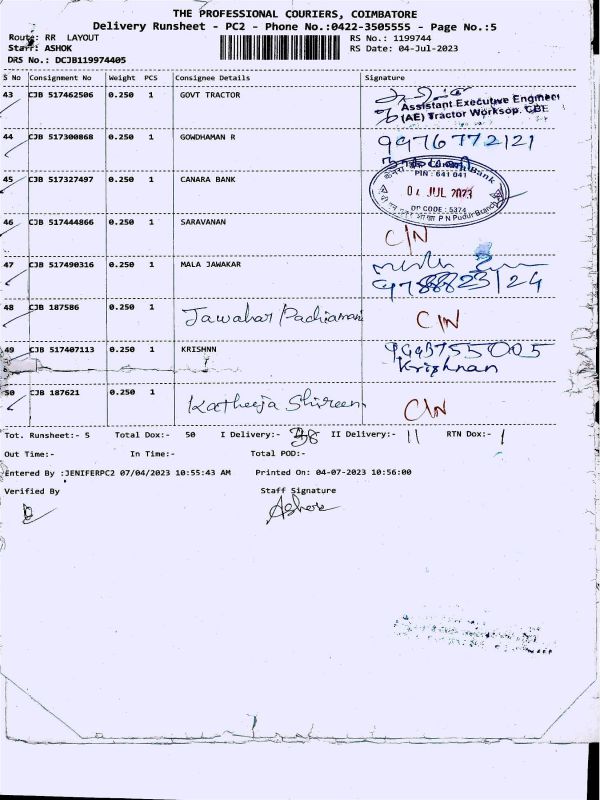 THE PROFESSIONAL COURIERS, COIMBATORE
Delivery Runsheet - PC2 - Phone No.:0422-3505555 - Page No.:5
Route: RR LAYOUT RS No.: 1199744
Staff: ASHOK RS Date: 04-Jul-2023
DRS No.: DCJB119974405
S No Consignment No Weight PCS Consignee Details Signature
43 CJB 517462506 0.250 1 GOVT TRACTOR
Assistant Executive Engineer
(AE) Tractor Worksop. CBE
44 CJB 517300868 1 0.250 GOWDHAMAN R 9976772121
45 CJB 517327497 0.250 1 CANARA BANK
Bank
PIN : 641 041
JUL 2023
DP CODE : 5374
P N Pudur Branch
46 CJB 517444866 0.250 1 SARAVANAN C/N
47 CJB 517490316 0.250 1 MALA JAWAKAR
48 CJB 187586 0.250 1 Jawahar C/N
49 CJB 517407113 0.250 1 KRISHNN
Krishnan
50 CJB 187621 0.250 1 Katheeja Shireen C/N
Tot. Runsheet:- 5 Total Dox:- 50 I Delivery:- 38 II Delivery:- 11 RTN Dox:- 1
Out Time:- In Time:- Total POD:-
Entered By :JENIFERPC2 07/04/2023 10:55:43 AM Printed On: 04-07-2023 10:56:00
Verified By Staff Signature
Ashok